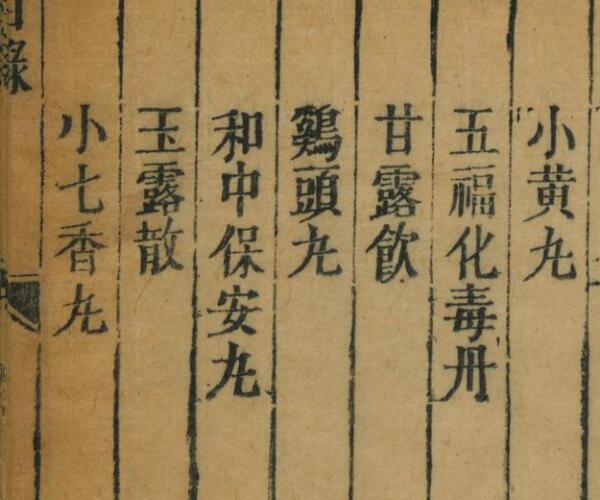 小黄丸
五福化毒丹
甘露飲
鷄頭丸
和中保安丸
玉露散
小七香丸
目錄